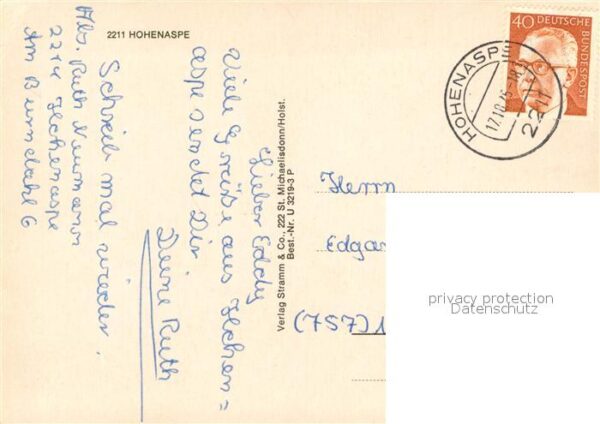 2211 HOHENASPE
Lieber Eddy
Viele Grüße aus Hohen=
aspe sendet Dir
Deine Ruth
Schreib mal wieder.
Abs. Ruth Neumann
2211 Hohenaspe
Am Bumdahl 6
Verlag Stramm & Co., 222 St. Michaelisdonn/Holst.
Best.-Nr. U 3219-3 P
40 DEUTSCHE BUNDESPOST
HOHENASPE
17.10.75
2211
Herrn
Edgar
(757)
privacy protection
Datenschutz